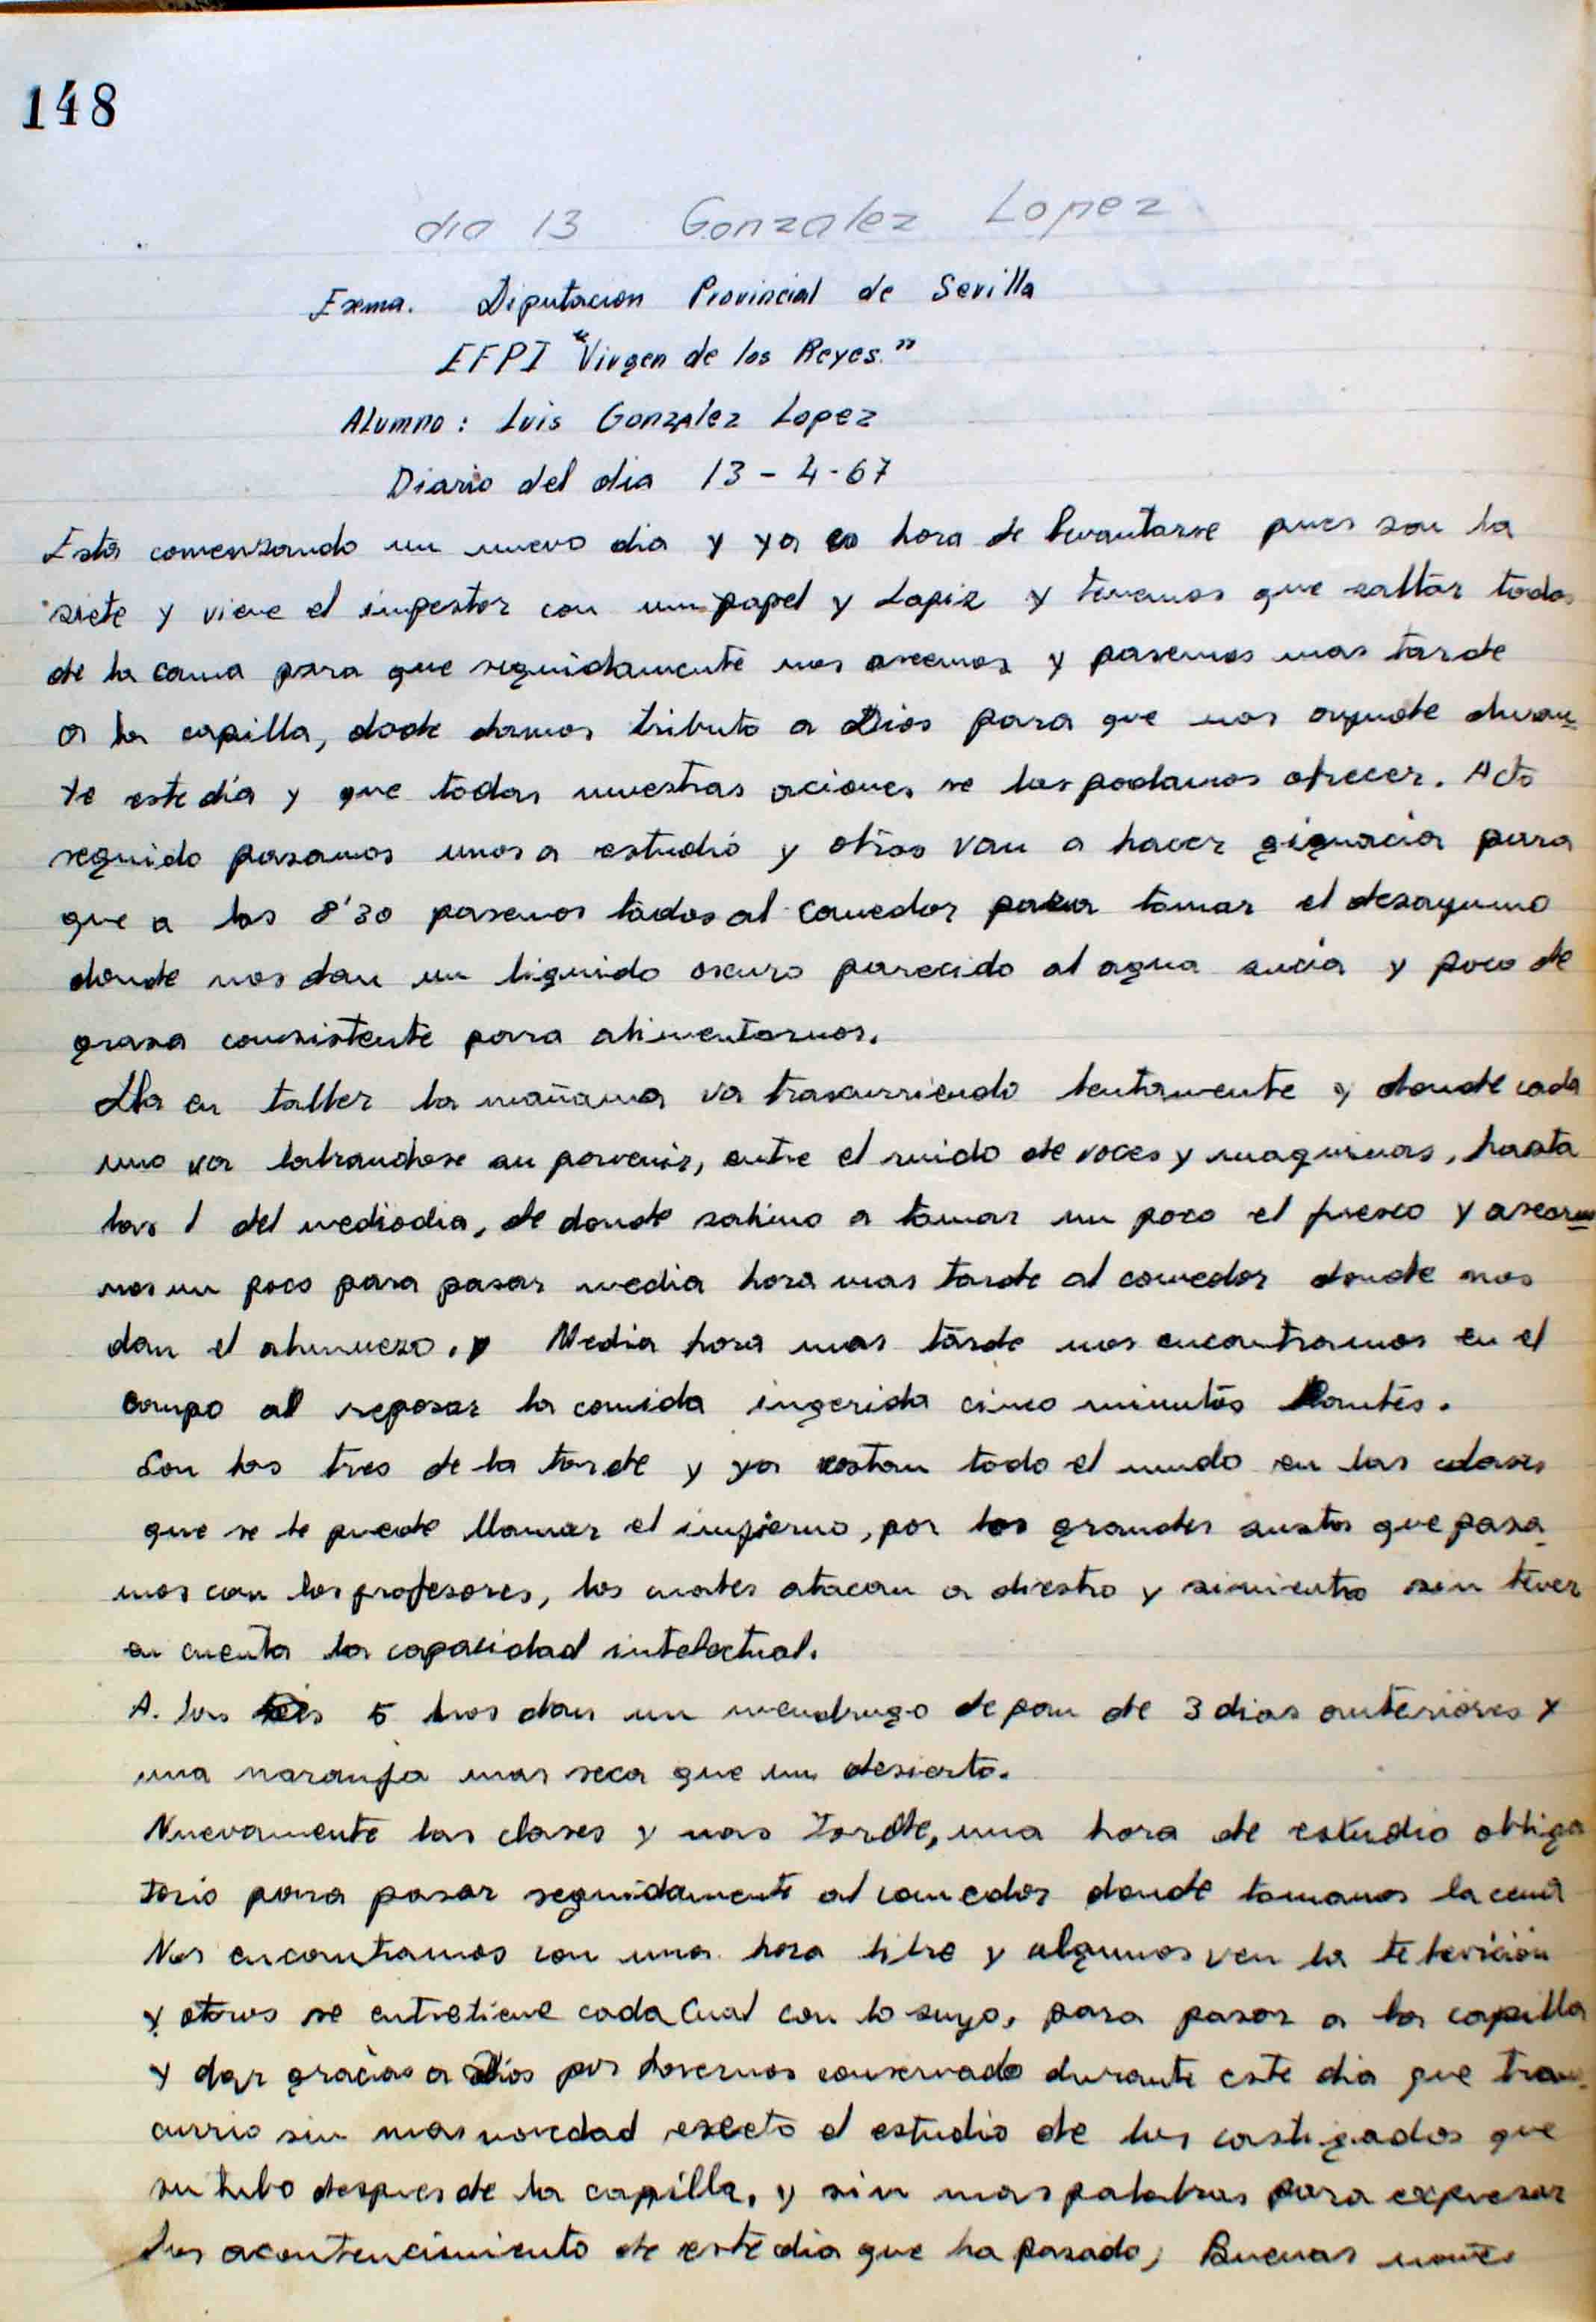 148
dia 13 Gonzalez Lopez
Exma. Diputacion Provincial de Sevilla
EFPI "Virgen de los Reyes."
Alumno: Luis Gonzalez Lopez
Diario del dia 13-4-67
Esta comenzando un nuevo dia y ya es hora de levantarse pues son la
siete y viene el inpestor con un papel y Lapiz y tenemos que saltar todos
de la cama para que seguidamente nos aseemos y pasemos mas tarde
a la capilla, dode damos tributo a Dios para que nos ayude duran-
te este día y que todas nuestras aciones se las podamos ofrecer. Acto
seguido pasamos unos a estudio y otros van a hacer gignacia para
que a las 8'30 pasemos todos al comedor para tomar el desayuno
donde nos dan un liquido oscuro parecido al agua sucia y poco de
grasa consistente para alimentarnos.
Lla en taller la mañana va trascurriendo lentamente y donde cada
uno va labrandose su porvenir, entre el ruido de voces y maquinas, hasta
las 1 del mediodia, de donde salimo a tomar un poco el fresco y asear
nos un poco para pasar media hora mas tarde al comedor donde nos
dan el almuezo. Media hora mas tarde nos encontramos en el
campo al reposar la comida ingerida cinco minutos antes.
Son las tres de la tarde y ya estan todo el mudo en las clases
que se le puede llamar el infierno, por los grandes sustos que pasa-
mos con los profesores, los cuales atacan a diestro y sinientro sin tener
en cuenta la capacidad intelectual.
A. las 5 nos dan un mendrugo de pan de 3 dias anteriores y
una naranja mas seca que un desierto.
Nuevamente las clases y mas tarde, una hora de estudio obliga
torio para pasar seguidamente al comedor donde tomamos la cena
Nos encontramos con una hora libre y algunos ven la televición
y otros se entretiene cada cual con lo suyo, para pasar a la capilla
y dar gracias a Dios por havernos conservado durante este dia que tran-
currio sin mas novedad exceto el estudio de los castigados que
su hubo despues de la capilla, y sin mas palabras para expresar
los acontencimiento de este dia que ha pasado, Buenas noches